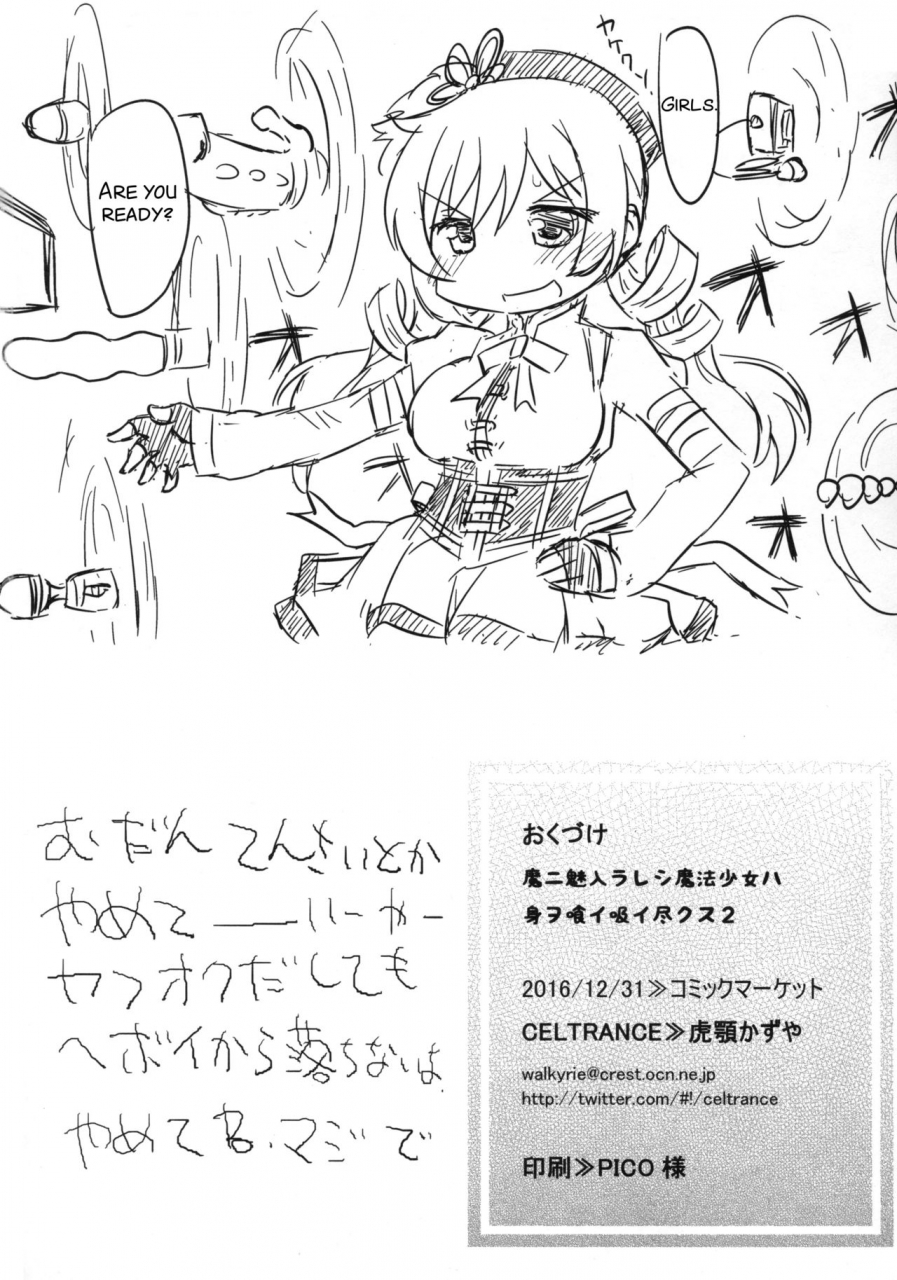 ヤケクソー
GIRLS.
ARE YOU
READY?
むだん てんさいとか
やめて
ヤフオクだしても
ヘボイから落ちないよ
やめてね、マジで
おくづけ
魔ニ魅入ラレシ魔法少女ハ
身ヲ喰イ吸イ尽クス2
2016/12/31≫コミックマーケット
CELTRANCE≫虎顎かずや
walkyrie@crest.ocn.ne.jp
http://twitter.com/#!/celtrance
印刷≫PICO 様